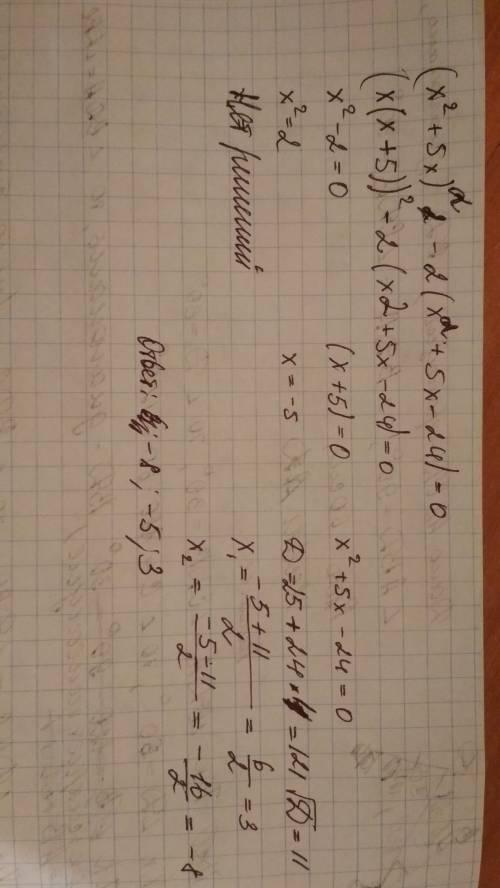 (x² + 5x)² - 2(x² + 5x - 24) = 0
(x(x+5))² - 2(x2 + 5x - 24) = 0
x² - 2 = 0 (x+5) = 0 x² + 5x - 24 = 0
x² = 2 x = -5 D = 25 + 24 * 4 = 121 √D = 11
Нет решений x₁ = (-5+11)/2 = 6/2 = 3
x₂ = (-5-11)/2 = -16/2 = -8
Ответ: -8; -5; 3